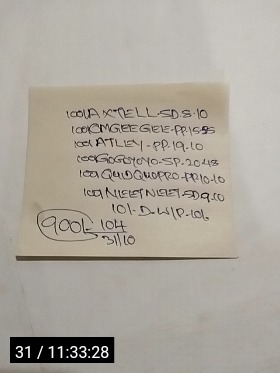 100/AXTELL-SD.8.10
100/CMGEEGIEIE-PP.15.55
100/ATLEY-PP.19.10
100/GOGOYOYO-SP.2048
100/QUIDQUOPRO-PP.10.10
100/NLEETNLEET-SD9.10
101-D.W/P.-101
900/- 104
31/10
31 / 11:33:28